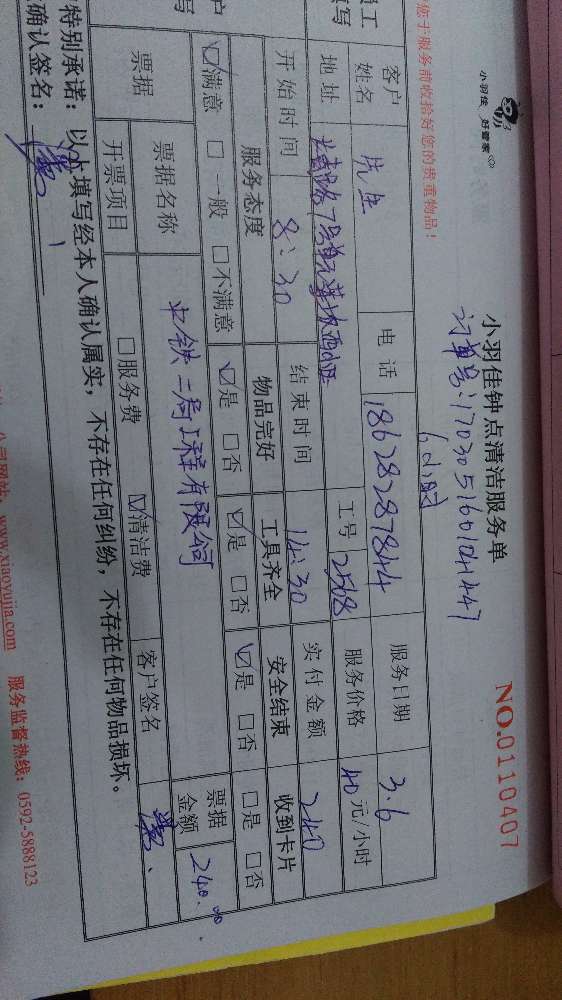 小羽佳 好管家
小羽佳钟点清洁服务单
NO.0110407
订单号:1703051601041447
您于服务前收拾好您的贵重物品!
6小时
客户姓名 先生 电话 18628287844 服务日期 3.6
地址 工号 2568 服务价格 40元/小时
开始时间 8:30 结束时间 14:30 实付金额 240
服务态度 物品完好 工具齐全 安全结束 收到卡片
☑满意 □一般 □不满意 ☑是 □否 ☑是 □否 ☑是 □否 □是 □否
票据 票据名称 中铁二局工程有限公司 票据金额 240.00
开票项目 □服务费 ☑清洁费 客户签名
特别承诺：以上填写经本人确认属实，不存在任何纠纷，不存在任何物品损坏。
确认签名：
公司网站：www.xiaoyujia.com 服务监督热线：0592-5888123